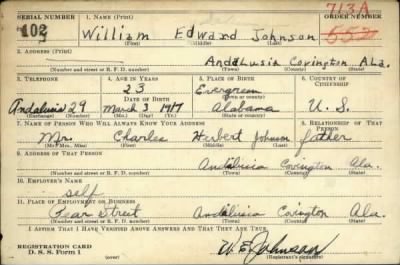 SERIAL NUMBER 1. NAME (Print) 713A ORDER NUMBER
102 William Edward Johnson
(First) (Middle) (Last)
2. ADDRESS (Print)
Andalusia Covington Ala.
(Number and street or R. F. D. number) (Town) (County) (State)
3. TELEPHONE 4. AGE IN YEARS 5. PLACE OF BIRTH 6. COUNTRY OF CITIZENSHIP
23 Evergreen
DATE OF BIRTH (Town or county)
Andalusia 29 March 3 1917 Alabama U. S.
(Exchange) (Number) (Mo.) (Day) (Yr.) (State or country)
7. NAME OF PERSON WHO WILL ALWAYS KNOW YOUR ADDRESS 8. RELATIONSHIP OF THAT PERSON
Mr. Charles Herbert Johnson father
(Mr., Mrs., Miss) (First) (Middle) (Last)
9. ADDRESS OF THAT PERSON
Andalusia Covington Ala.
(Number and street or R. F. D. number) (Town) (County) (State)
10. EMPLOYER'S NAME
self
11. PLACE OF EMPLOYMENT OR BUSINESS
Street Andalusia Covington Ala.
(Number and street or R. F. D. number) (Town) (County) (State)
I AFFIRM THAT I HAVE VERIFIED ABOVE ANSWERS AND THAT THEY ARE TRUE.
REGISTRATION CARD
D. S. S. Form 1
W. E. Johnson
(Registrant's signature)